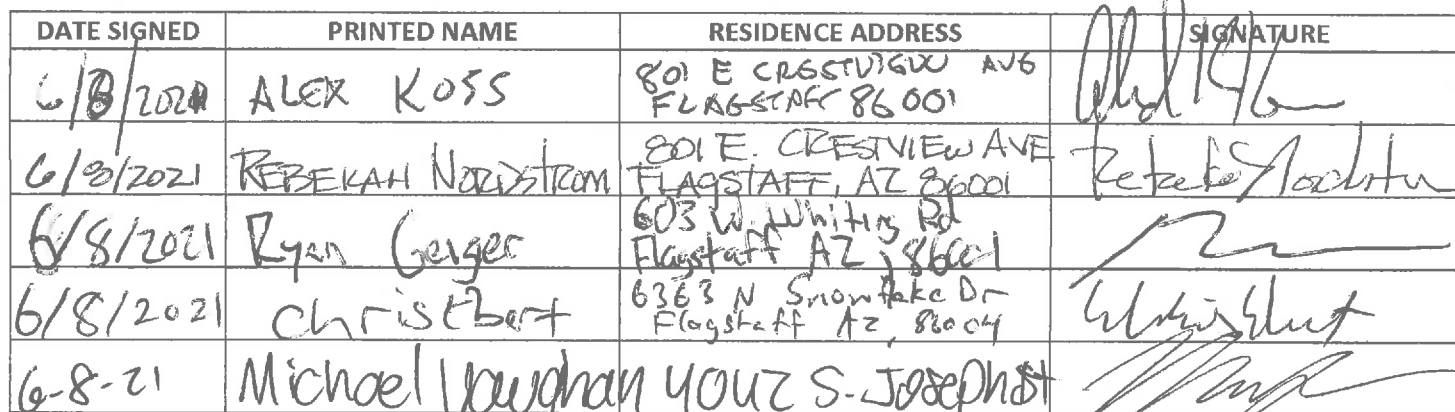 DATE SIGNED PRINTED NAME RESIDENCE ADDRESS SIGNATURE
6/8/2021 ALEX KOSS 801 E CRESTVIEW AVE
FLAGSTAFF 86001
6/8/2021 REBEKAH NORDSTROM 801 E. CRESTVIEW AVE
FLAGSTAFF, AZ 86001
6/8/2021 Ryan Geiger 603 W. Whiting Rd
Flagstaff AZ, 86001
6/8/2021 Chris Ebert 6363 N Snowflake Dr
Flagstaff AZ, 86004
6-8-21 Michael Vaughan S. Joseph st